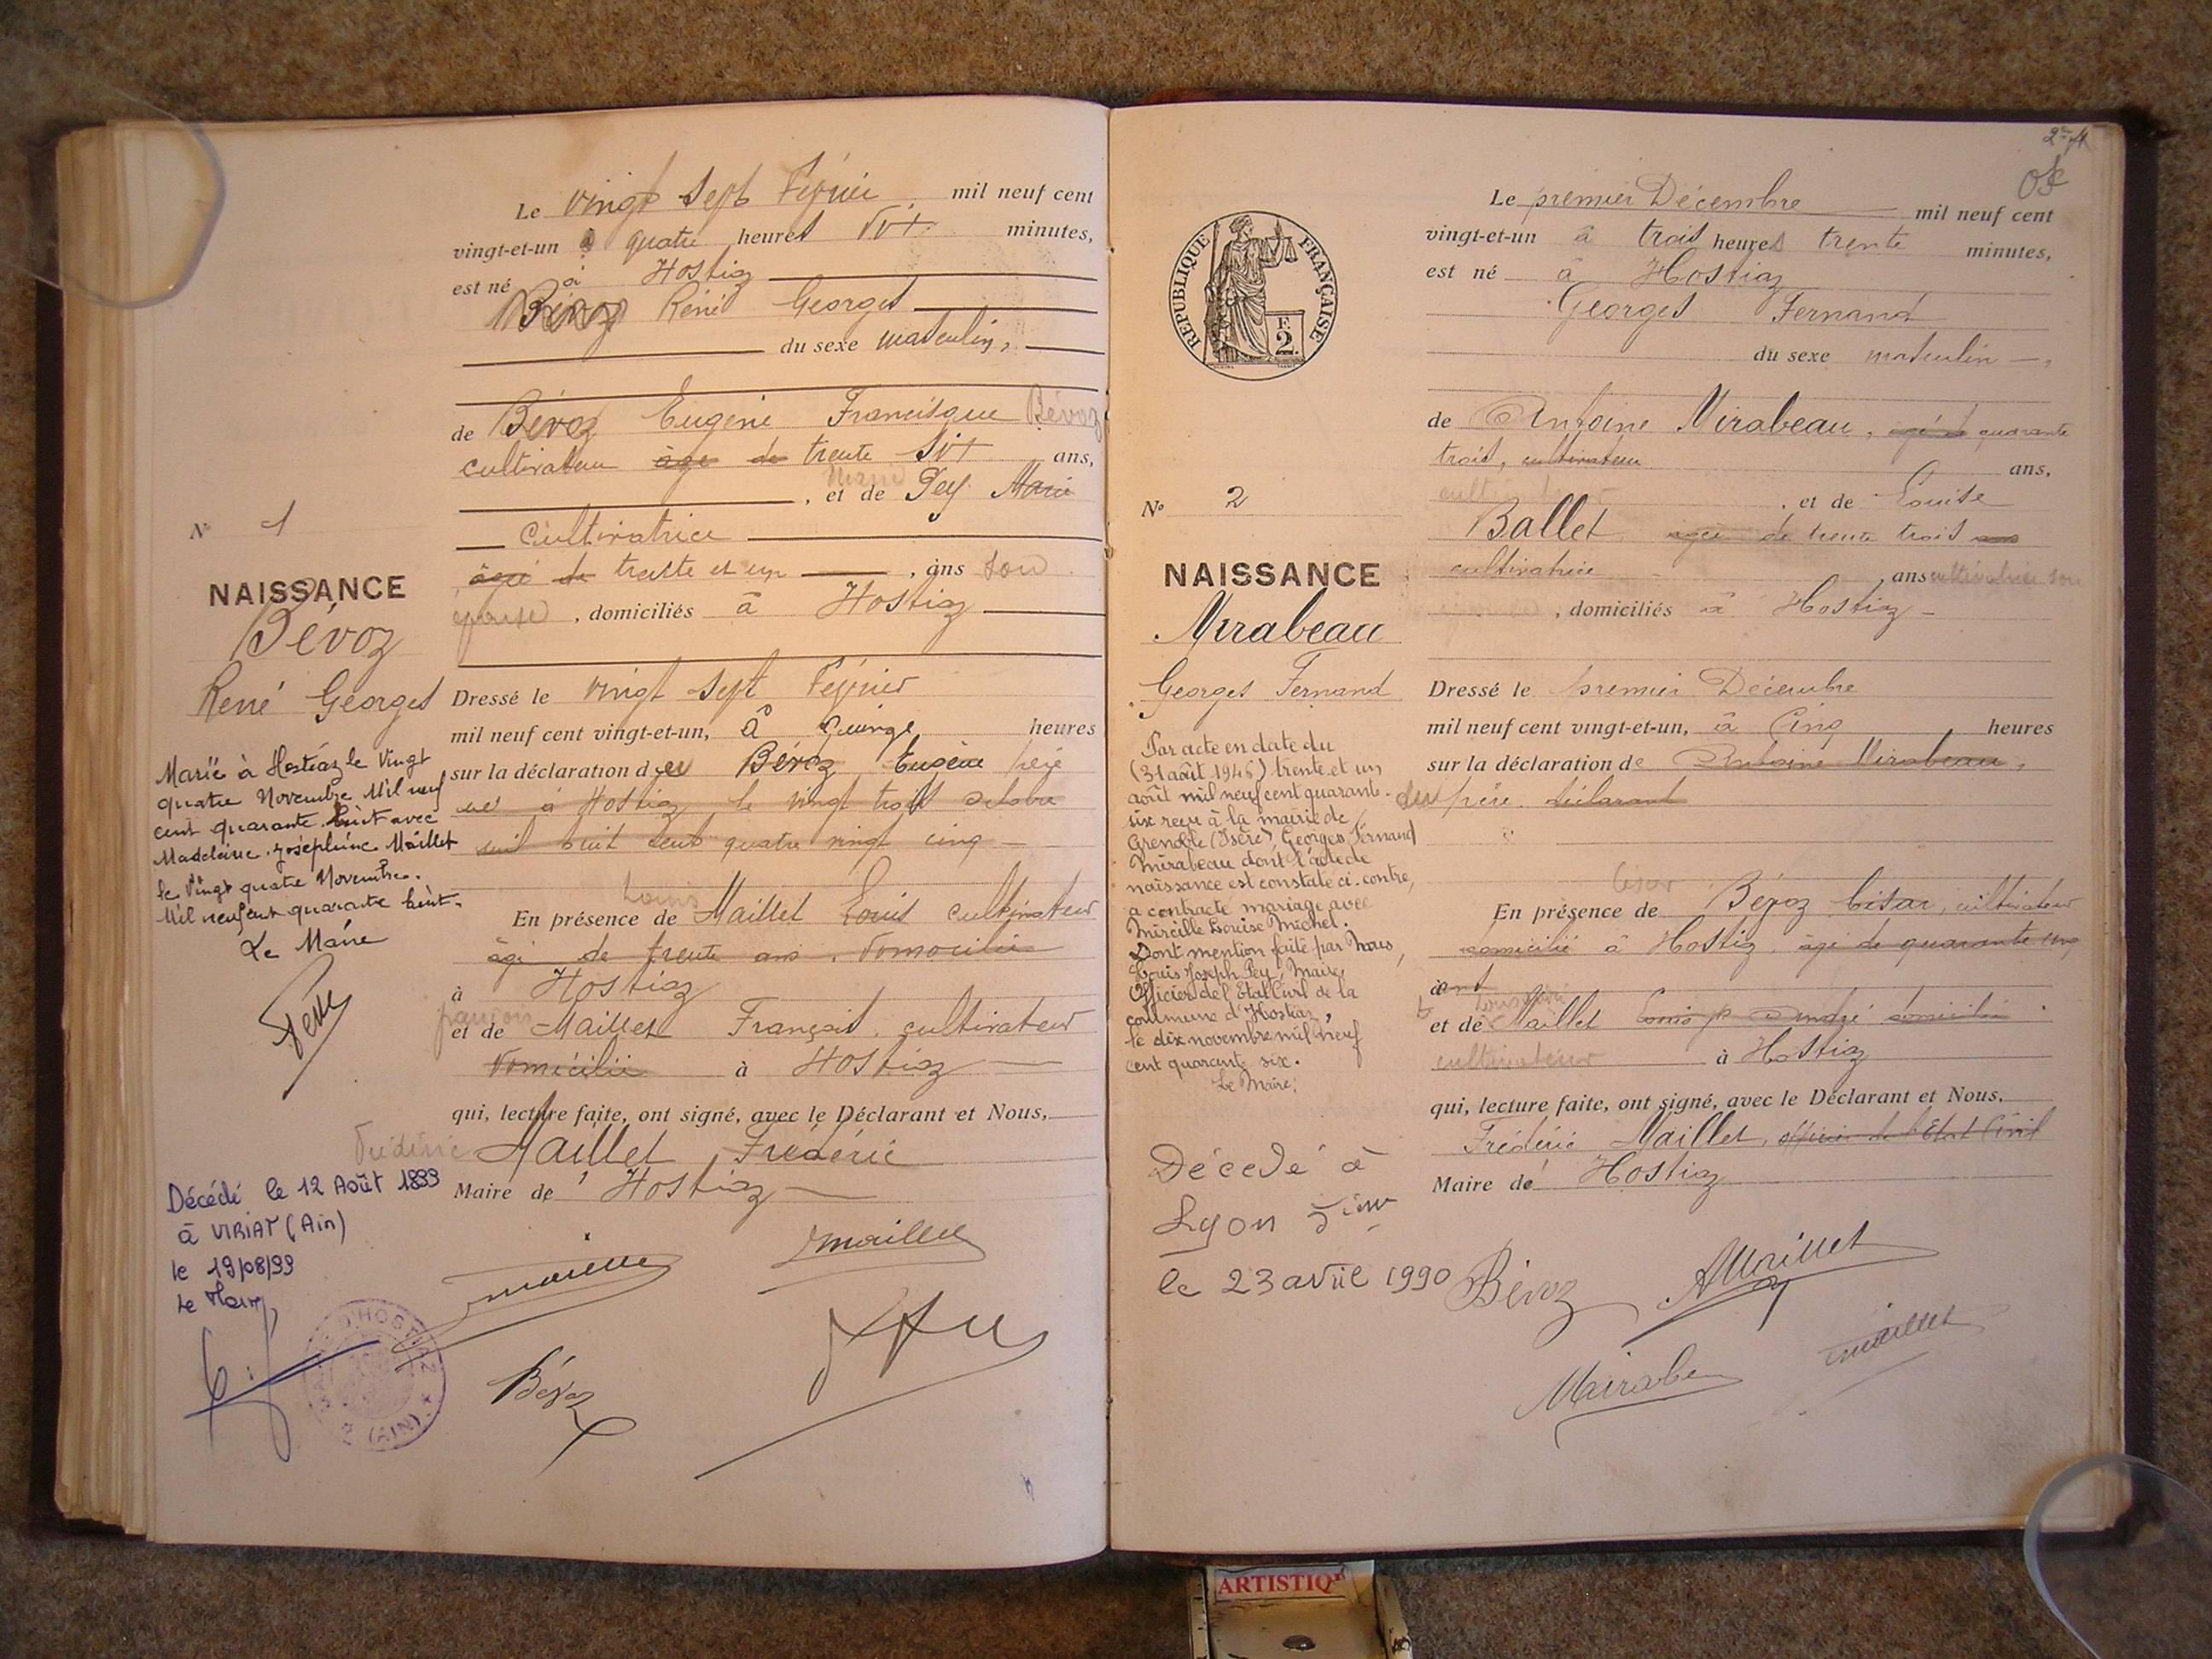 Le vingt sept Février mil neuf cent
vingt-et-un à quatre heures six minutes,
est né à Hostiaz
Bévoz Réné Georges
du sexe masculin,
de Bévoz Eugène Francisque Bévoz
cultivateur âgé de trente six ans,
Marie
, et de Pey Marie
cultivatrice
âgée de trente et un , ans son
épouse , domiciliés à Hostiaz
N° 1
NAISSANCE
Bévoz
René Georges
Dressé le vingt sept Février
mil neuf cent vingt-et-un, à quinze heures
sur la déclaration du Bévoz Eugène père
né à Hostiaz le vingt trois Octobre
mil huit cent quatre vingt cinq
Louis
En présence de Maillet Louis cultivateur
âgé de trente ans, domicilié
à Hostiaz
et de Maillet François, cultivateur
domicilié à Hostiaz
qui, lecture faite, ont signé, avec le Déclarant et Nous,
Frédéric Maillet Frédéric
Maire de Hostiaz
Marié à Hostiaz le Vingt
quatre Novembre Mil neuf
cent quarante huit avec
Madeleine Joséphine Maillet
le Vingt quatre Novembre
Mil neuf cent quarante huit.
Le Maire
Décédé le 12 Août 1899
à VIRIAT (Ain)
le 19/08/99
Le Maire
D'HOSTIAZ
(AIN)
Maillet
Bévoz
2
Le premier Décembre mil neuf cent
vingt-et-un à trois heures trente minutes,
est né à Hostiaz
Georges Fernand
du sexe masculin
REPUBLIQUE FRANÇAISE
F
2
de Antoine Mirabeau, âgé de quarante
trois, cultivateur ans,
cultivateur , et de Louise
Ballet âgée de trente trois ans
cultivatrice , ans cultivatrice son
, domiciliés à Hostiaz
N° 2
NAISSANCE
Mirabeau
Georges Fernand
Dressé le premier Décembre
mil neuf cent vingt-et-un, à Cinq heures
sur la déclaration de Antoine Mirabeau,
du père déclarant
César
En présence de Bévoz César, cultivateur
domicilié à Hostiaz, âgé de quarante cinq
ans
et de Maillet Louis André domicilié
cultivateur à Hostiaz
qui, lecture faite, ont signé, avec le Déclarant et Nous,
Frédéric Maillet, officier de l'Etat Civil
Maire de Hostiaz
Par acte en date du
(31 août 1946) trente et un
août mil neuf cent quarante-
six reçu à la mairie de
Grenoble (Isère), Georges Fernand
Mirabeau dont l'acte de
naissance est constaté ci-contre,
a contracté mariage avec
Mireille Louise Michel.
Dont mention faite par Nous,
Louis Joseph Pey, Maire,
Officier de l'Etat Civil de la
commune d'Hostiaz,
le dix novembre mil neuf
cent quarante six.
Le Maire:
Décédé à
Lyon 5ième
le 23 avril 1990
Bévoz
AMaillet
Mirabeau
Maillet
ARTISTIQ